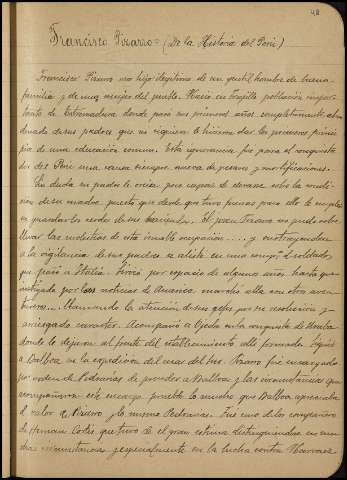 48
Francisco Pizarro = (De la Historia del Perú)
Francisco Pizarro era hijo ilegítimo de un gentil hombre de buena
familia y de una mujer del pueblo. Nació en Trujillo población
de Extremadura donde pasó sus primeros años completamente aban
donado de sus padres que ni siquiera le hicieron dar los primeros princi
pios de una educación común. Esta ignorancia fue para el conquista
dor del Perú una causa siempre nueva de pesares y mortificaciones.
Sin duda su padre le creía poco capaz de elevarse sobre la condi
cion de su madre, puesto que desde que tuvo fuerzas para ello le empleó
en guardar los cerdos de su hacienda. El joven Pizarro no pudo sobre
llevar las molestias de esta innoble ocupación .... y
a la vigilancia de sus padres se alistó en una de soldados
que pasó a Italia. Sirvió por espacio de algunos años hasta que
por las noticias de América marchó allá con otros aven
tureros... Llamando la atención de sus gefes por su resolucion y
arriesgado caracter. Acompañó a Ojeda en la conquista de
donde le dejaron al frente del establecimiento allí formado. Siguió
a Balboa en la expedicion del mar del Sur. Pizarro fué encargado
por orden de Pedrarias de prender a Balboa y las circunstancias que
acompañaron este encargo prueba lo mucho que Balboa apreciaba
el valor de Pizarro y lo mismo Pedrarias. Fué uno de los compañeros
de Hernan Cortés que tuvo de él gran estima distinguiendose en
circunstancias y especialmente en la lucha contra Narvaez